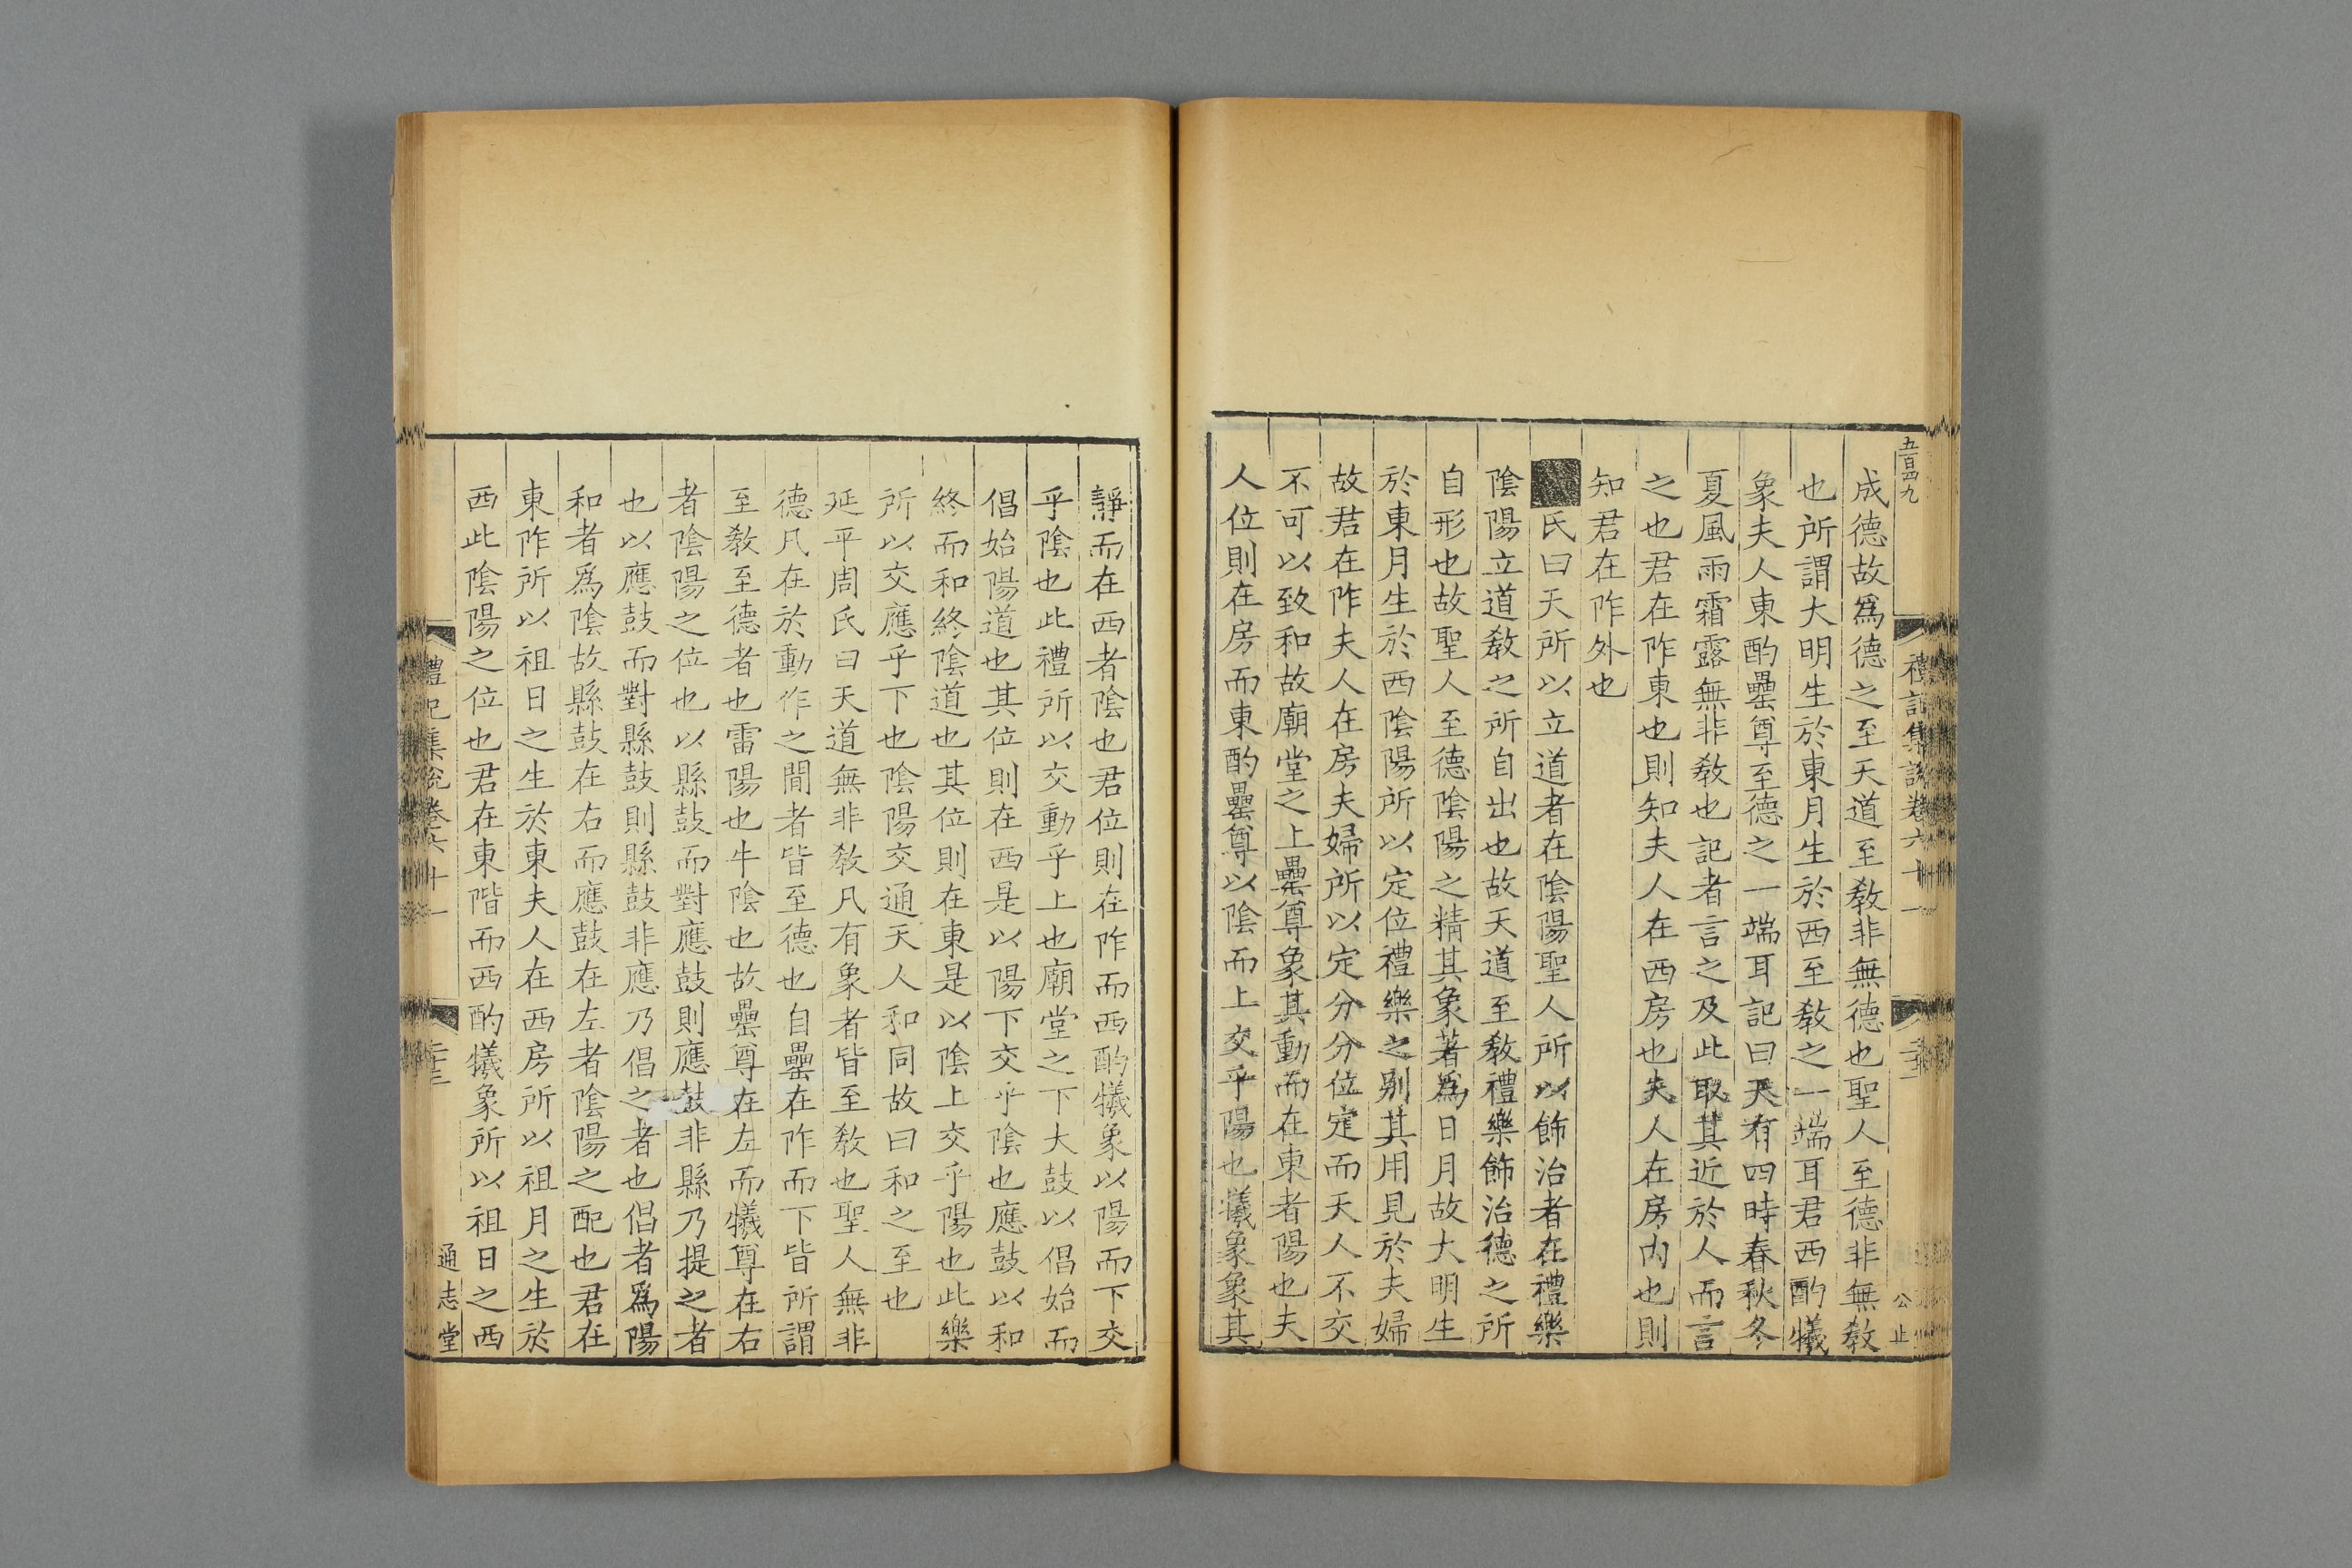 五百四九
禮記集說卷六十一
公止
成德故爲德之至天道至教非無德也聖人至德非無教
也所謂大明生於東月生於西至教之一端耳君西酌犧
象夫人東酌罍尊至德之一端耳記曰天有四時春秋冬
夏風雨霜露無非教也記者言之及此取其近於人而言
之也君在阼東也則知夫人在西房也夫人在房內也則
知君在阼外也
氏曰天所以立道者在陰陽聖人所以飾治者在禮樂
陰陽立道教之所自出也故天道至教禮樂飾治德之所
自形也故聖人至德陰陽之精其象著爲日月故大明生
於東月生於西陰陽所以定位禮樂之別其用見於夫婦
故君在阼夫人在房夫婦所以定分分位定而天人不交
不可以致和故廟堂之上罍尊象其動而在東者陽也夫
人位則在房而東酌罍尊以陰而上交乎陽也犧象象其
靜而在西者陰也君位則在阼而西酌犧象以陽而下交
乎陰也此禮所以交動乎上也廟堂之下大鼓以倡始而
倡始陽道也其位則在西是以陽下交乎陰也應鼓以和
終而和終陰道也其位則在東是以陰上交乎陽也此樂
所以交應乎下也陰陽交通天人和同故曰和之至也
延平周氏曰天道無非教凡有象者皆至教也聖人無非
德凡在於動作之間者皆至德也自罍在阼而下皆所謂
至教至德者也雷陽也牛陰也故罍尊在左而犧尊在右
者陰陽之位也以縣鼓而對應鼓則應鼓非縣乃提之者
也以應鼓而對縣鼓則縣鼓非應乃倡之者也倡者爲陽
和者爲陰故縣鼓在右而應鼓在左者陰陽之配也君在
東阼所以祖日之生於東夫人在西房所以祖月之生於
西此陰陽之位也君在東階而西酌犧象所以祖日之西
禮記集說卷六十一
通志堂